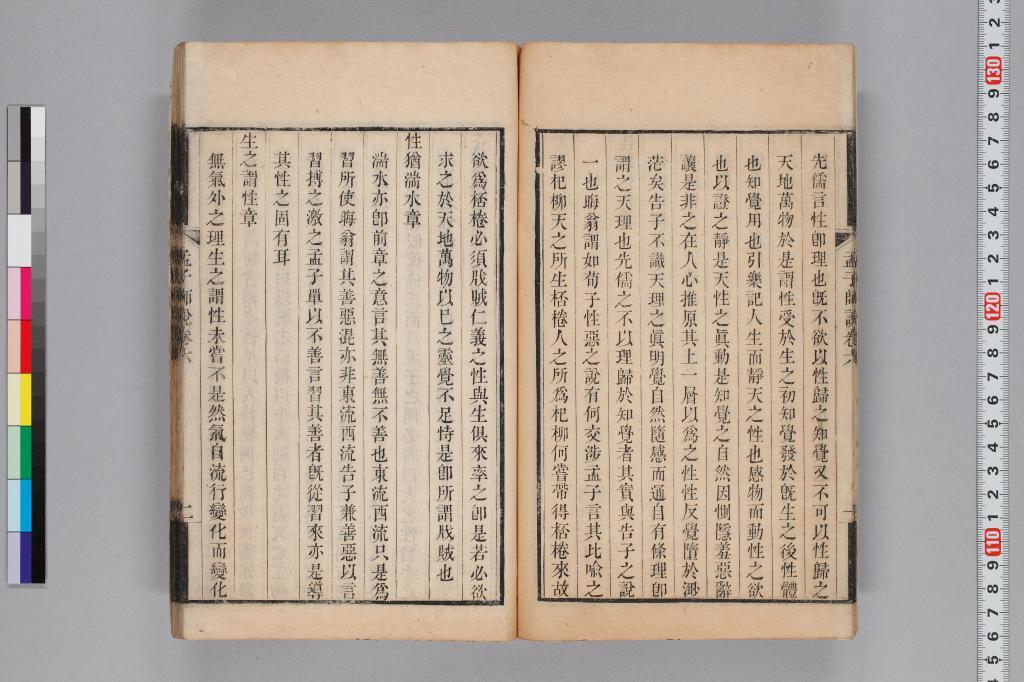 先儒言性卽理也旣不欲以性歸之知覺又不可以性歸之
天地萬物於是謂性受於生之初知覺發於旣生之後性體
也知覺用也引樂記人生而靜天之性也感物而動性之欲
也以證之靜是天性之眞動是知覺之自然因惻隱羞惡辭
讓是非之在人心推原其上一層以爲之性性反覺墮於渺
茫矣告子不識天理之眞明覺自然隨感而通自有條理卽
謂之天理也先儒之不以理歸於知覺者其實與告子之說
一也晦翁謂如荀子性惡之說有何交涉孟子言其比喩之
謬杞柳天之所生桮棬人之所爲杞柳何嘗帶得桮棬來故
孟子師說卷六
一
欲爲桮棬必須戕賊仁義之性與生俱來率之卽是若必欲
求之於天地萬物以已之靈覺不足恃是卽所謂戕賊也
性猶湍水章
湍水亦卽前章之意言其無善無不善也東流西流只是爲
習所使晦翁謂其善惡混亦非東流西流告子兼善惡以言
習搏之激之孟子單以不善言習其善者旣從習來亦是導
其性之固有耳
生之謂性章
無氣外之理生之謂性未嘗不是然氣自流行變化而變化
孟子師說卷六
二